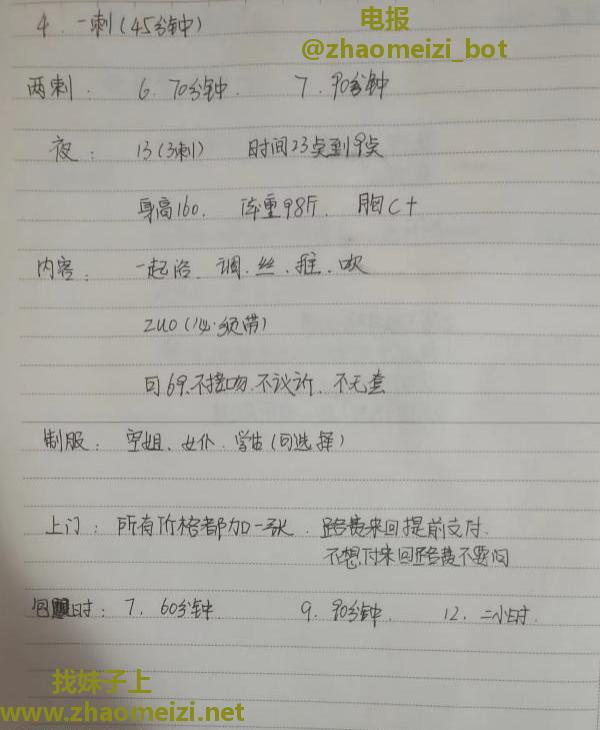 4. 一刺(45分钟)
电报
@zhaomeizi_bot
两刺: 6. 70分钟. 7. 90分钟
夜: 13(3刺) 时间23点到9点
身高160. 体重98斤. 胸C+
内容: 一起浴. 调. 丝. 推. 吹
ZUO(必须带)
可69.不接吻.不议价.不无套
制服: 空姐. 女仆. 学生(可选择)
上门: 所有价格都加一张. 路费来回提前支付.
不想付来回路费不要问
包时: 7. 60分钟. 9. 90分钟. 12. 二小时.
找妹子上
www.zhaomeizi.net